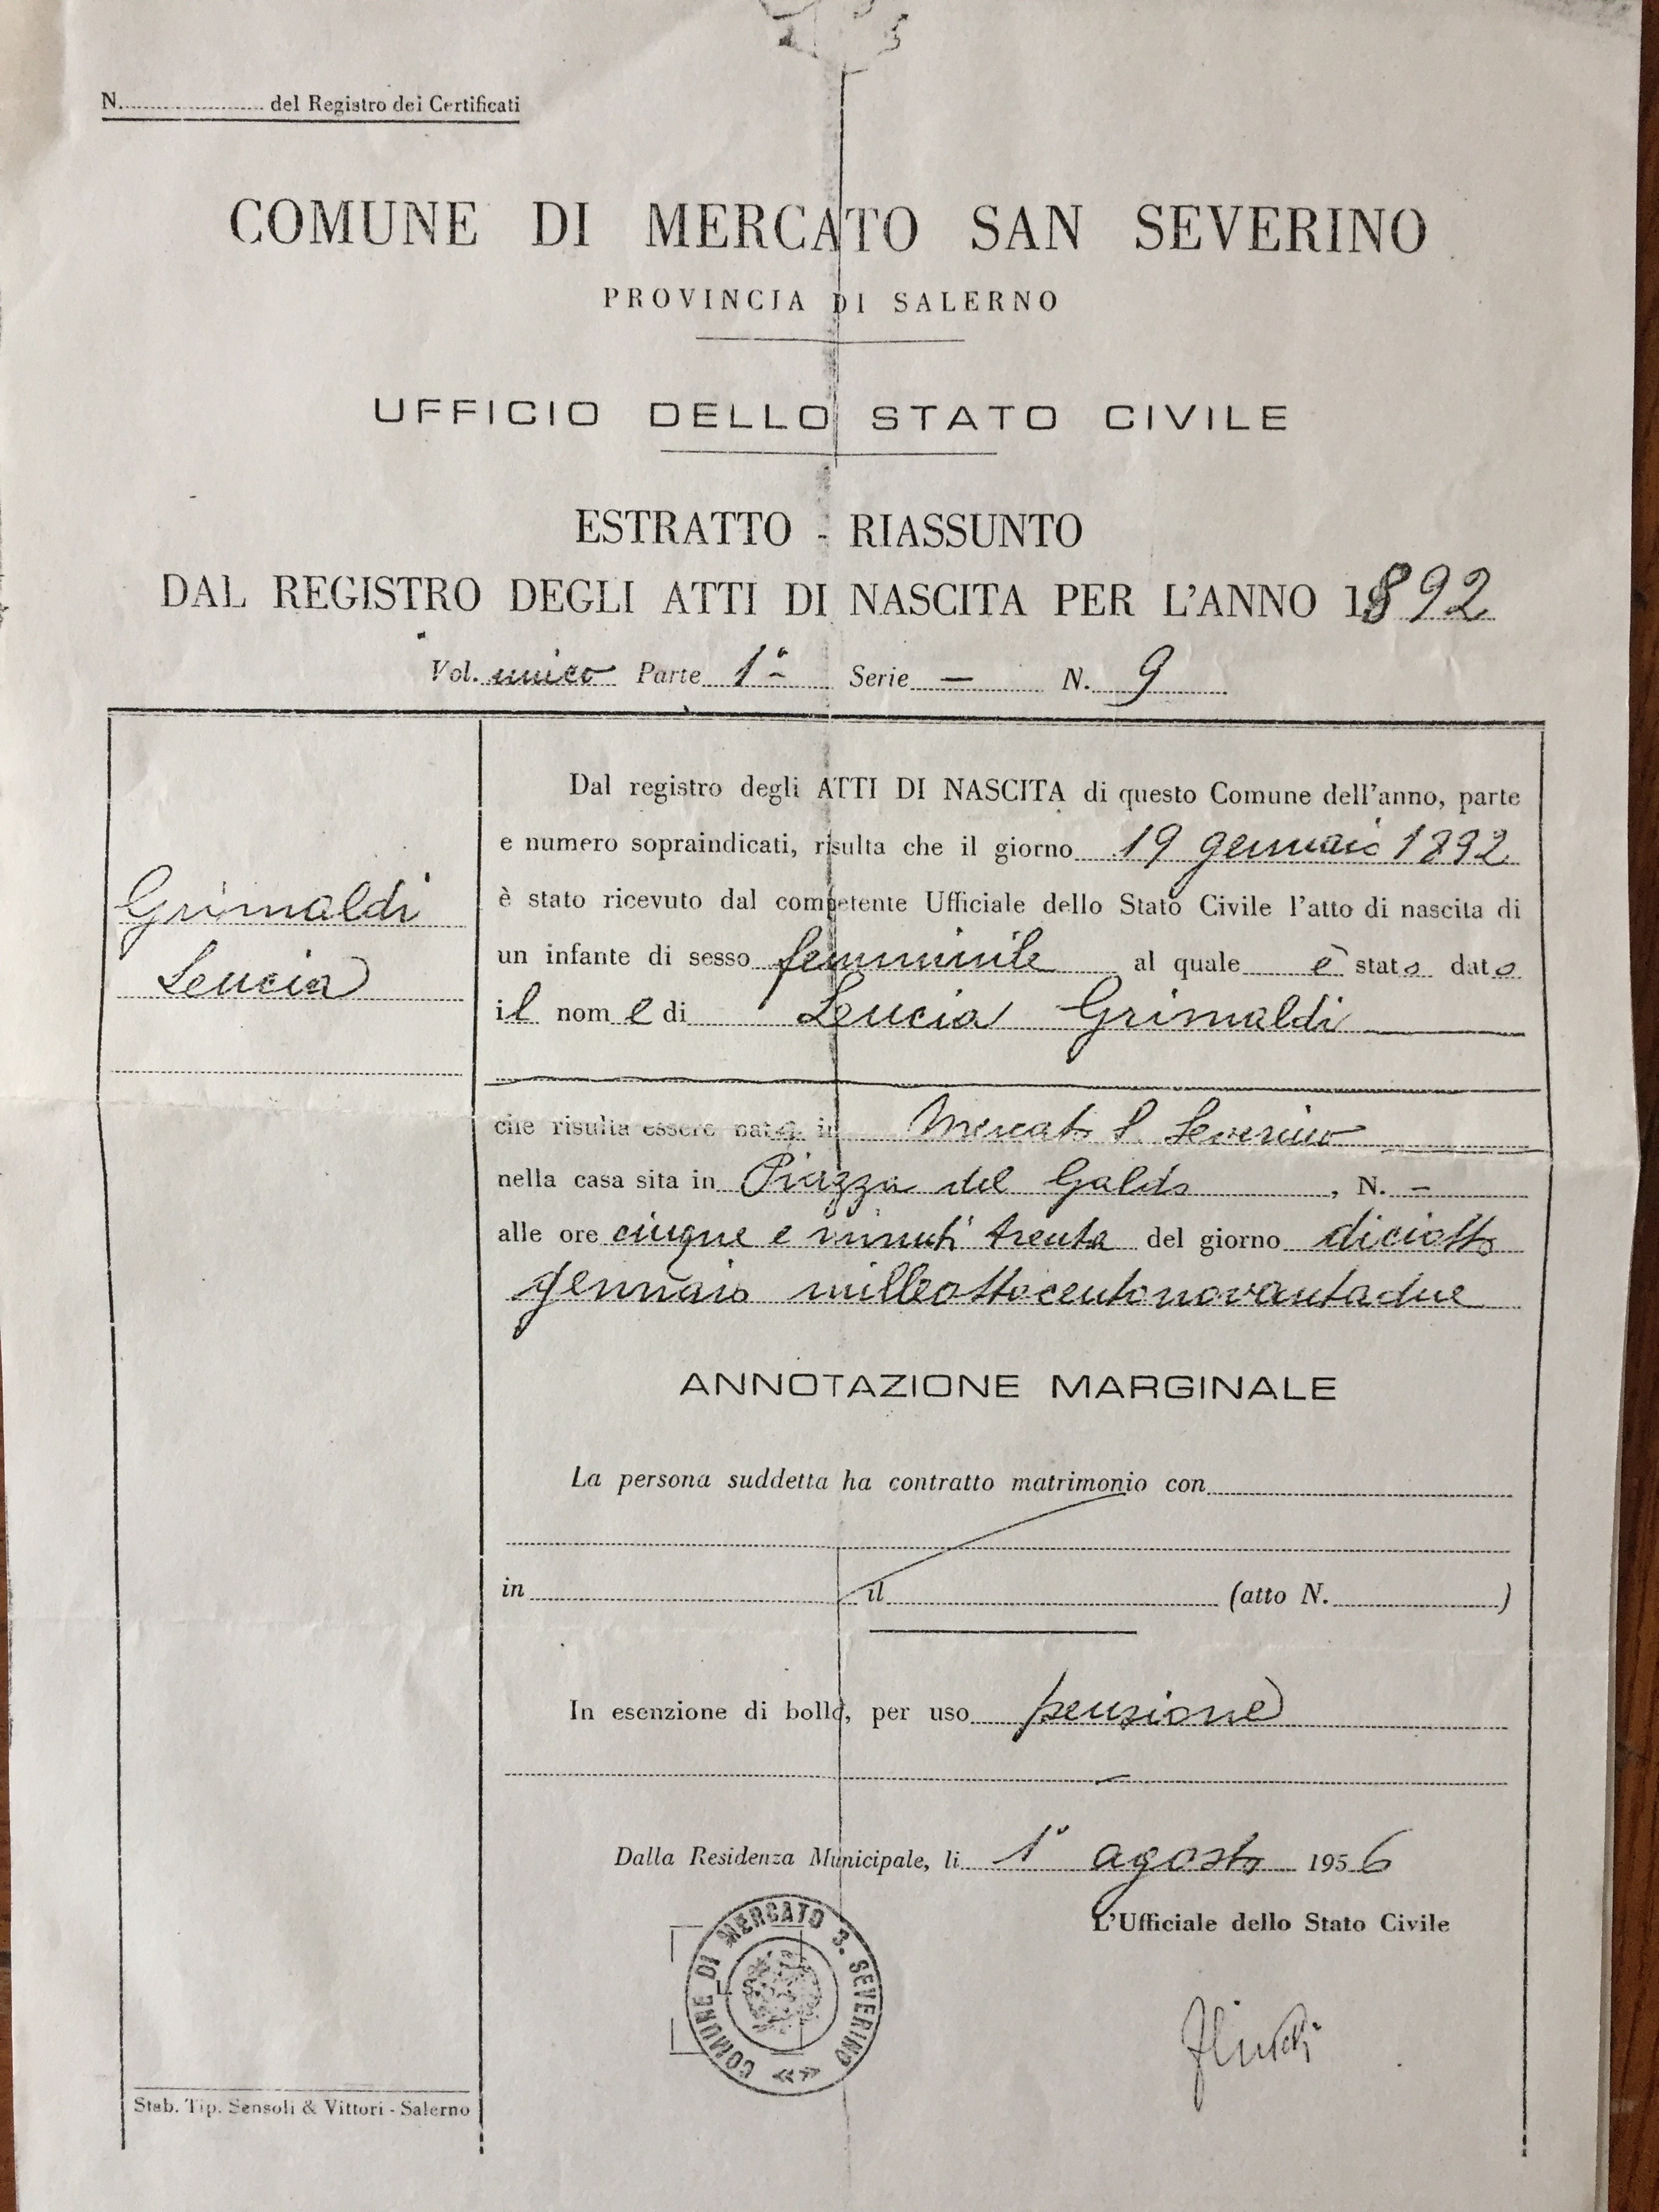 N. del Registro dei Certificati
COMUNE DI MERCATO SAN SEVERINO
PROVINCIA DI SALERNO
UFFICIO DELLO STATO CIVILE
ESTRATTO - RIASSUNTO
DAL REGISTRO DEGLI ATTI DI NASCITA PER L'ANNO 1892
Vol. unico Parte 1a Serie — N. 9
Grimaldi
Leucia
Dal registro degli ATTI DI NASCITA di questo Comune dell'anno, parte
e numero sopraindicati, risulta che il giorno 19 gennaio 1892
è stato ricevuto dal competente Ufficiale dello Stato Civile l'atto di nascita di
un infante di sesso femminile al quale è stato dato
il nome di Leucia Grimaldi
che risulta essere nata in Mercato S. Severino
nella casa sita in Piazza del Galdo, N. –
alle ore cinque e minuti trenta del giorno diciotto
gennaio milleottocentonovantadue
ANNOTAZIONE MARGINALE
La persona suddetta ha contratto matrimonio con
in il (atto N. )
In esenzione di bollo, per uso pensione
Dalla Residenza Municipale, li 1° agosto 1956
L'Ufficiale dello Stato Civile
COMUNE DI MERCATO S. SEVERINO
Stab. Tip. Sensoli & Vittori - Salerno